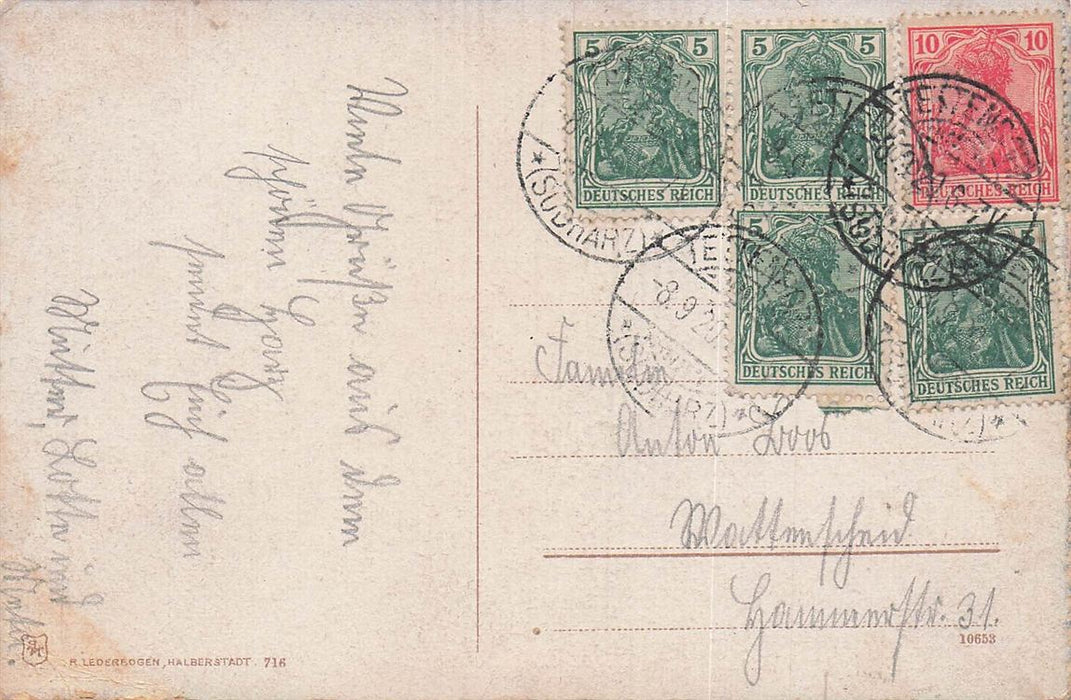 Viele Grüße aus dem
schönen Harz
sendet Euch allen
Mutter, Lotte und
5 5
DEUTSCHES REICH
5 5
DEUTSCHES REICH
10 10
DEUTSCHES REICH
5
DEUTSCHES REICH
DEUTSCHES REICH
* (SÜDHARZ) *
-8.9.20
Familie
Anton Loos
Wattenscheid
Hammerstr. 31.
10653
R. LEDERBOGEN, HALBERSTADT. 716